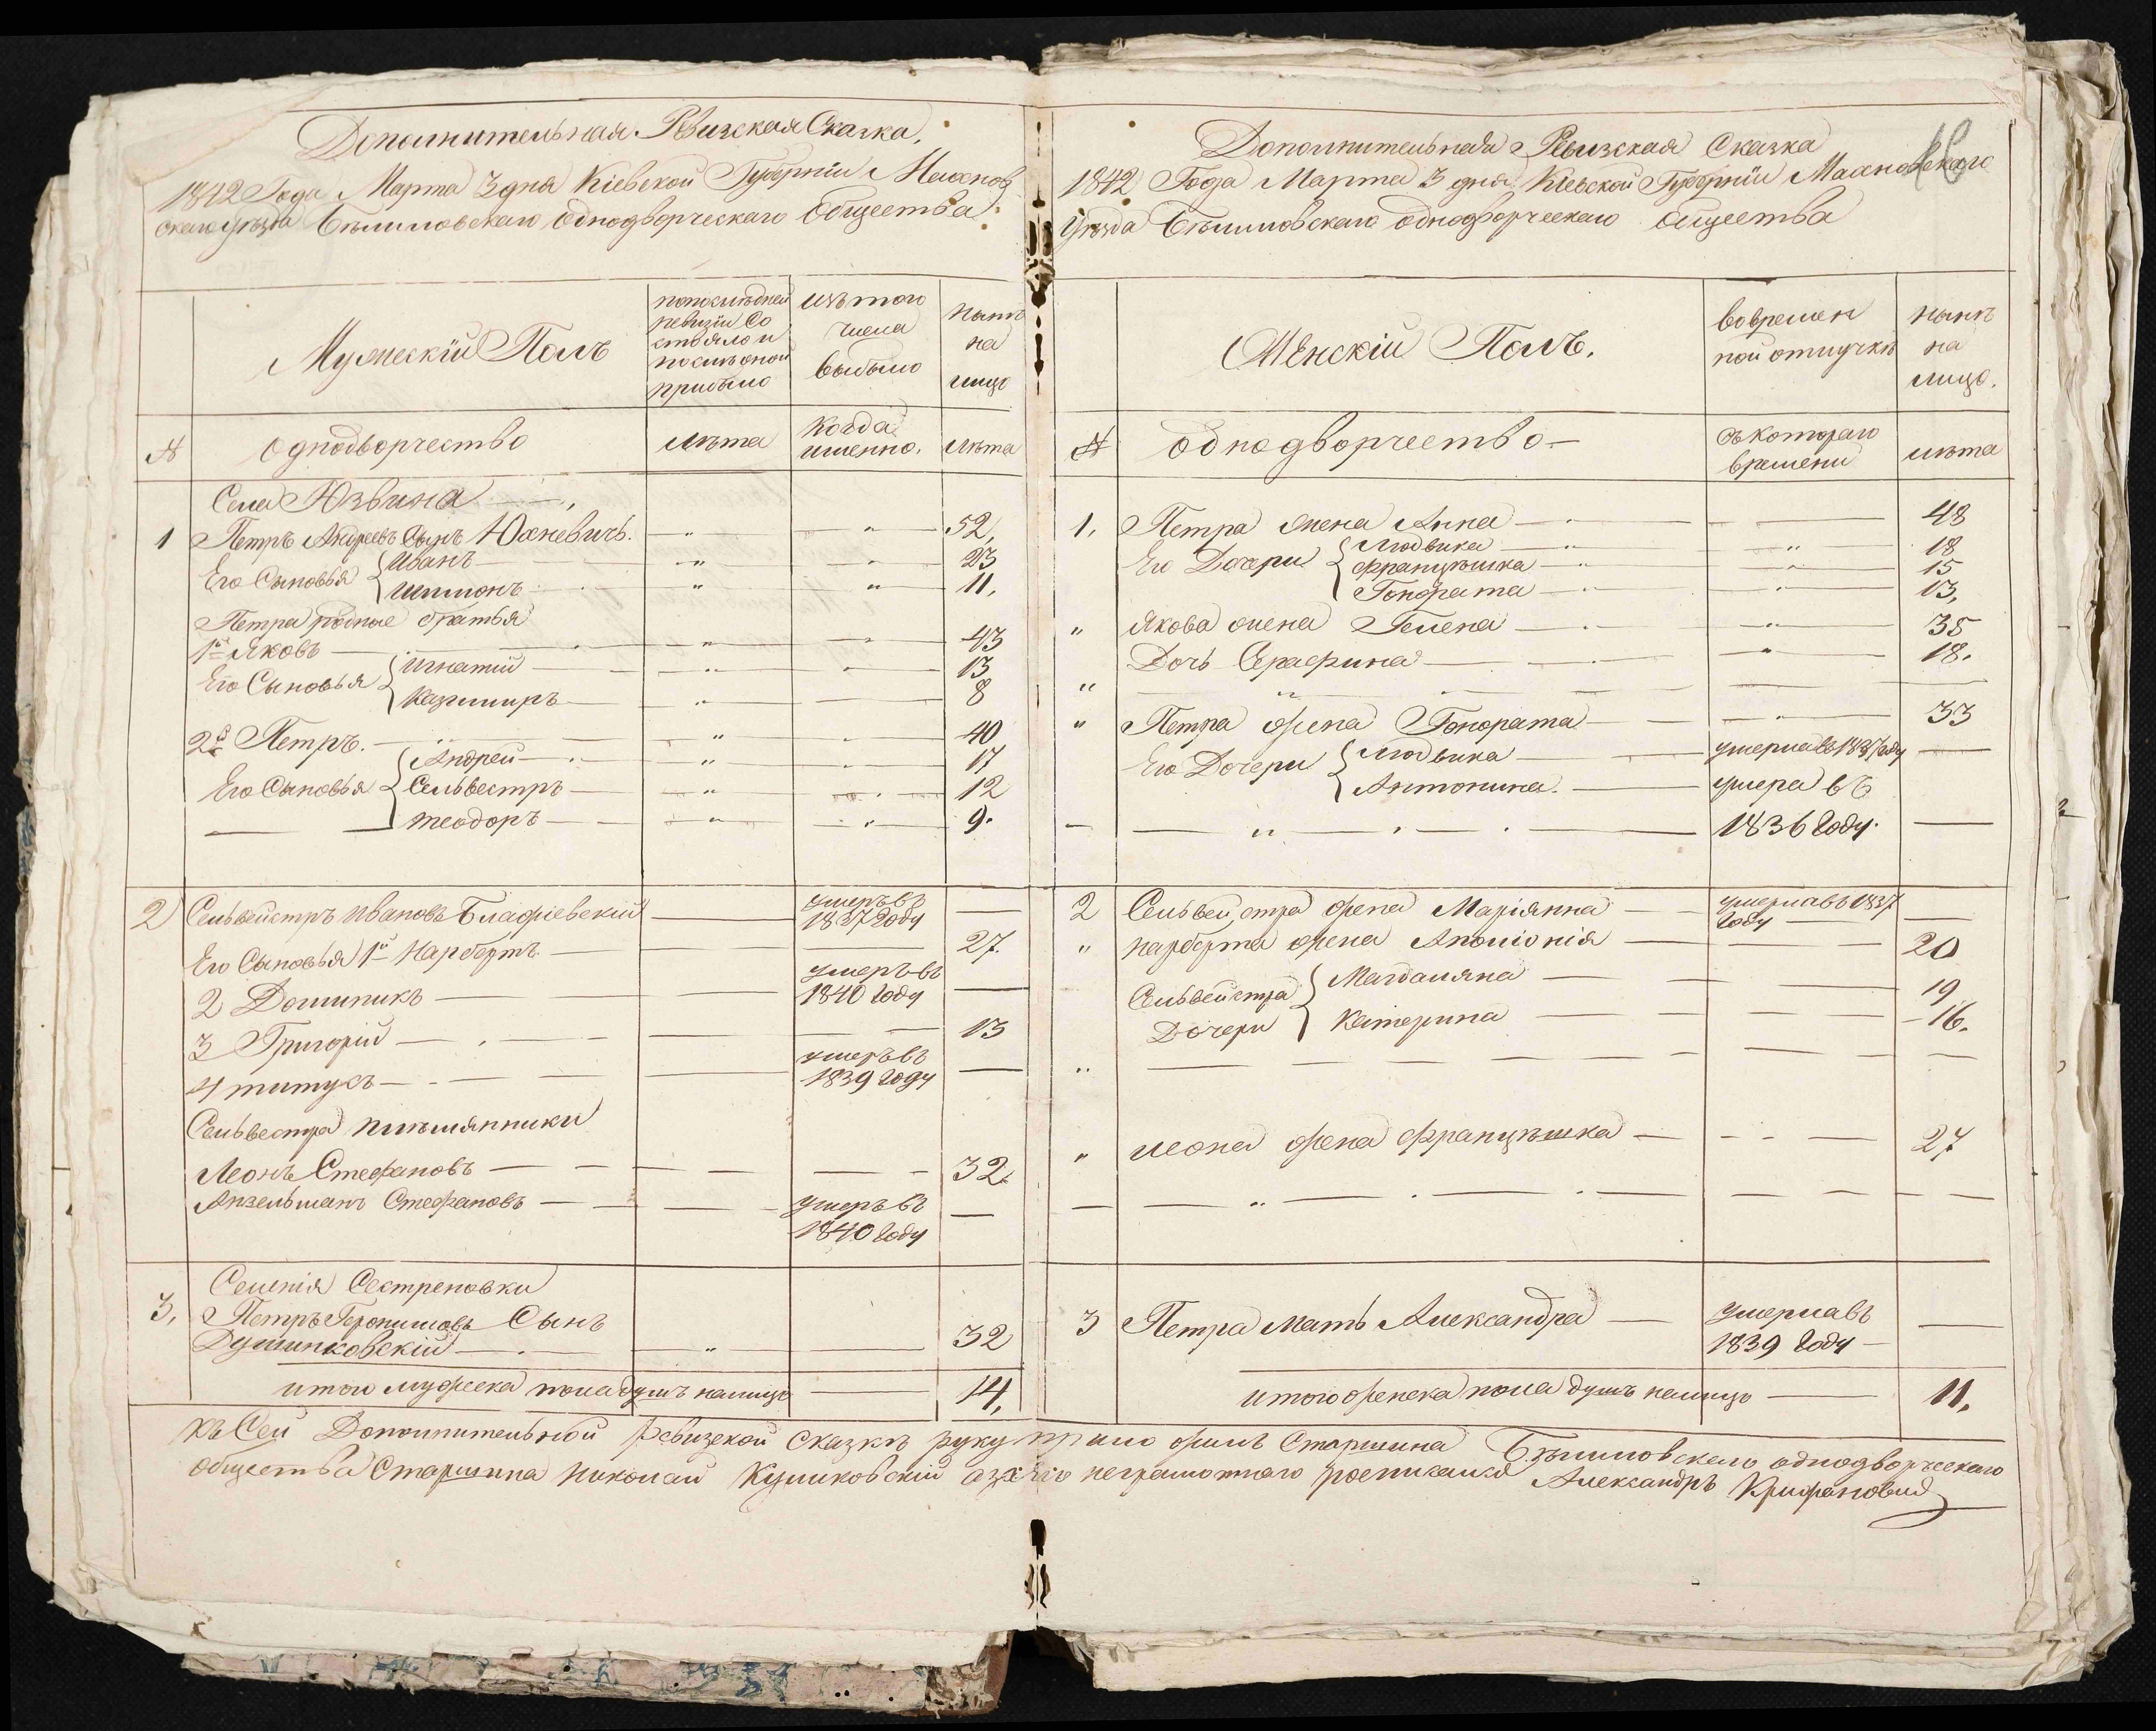 Дополнительная Ревизская Сказка.
1842 Года Марта 3 дня Кіевской Губерніи Махнов
скаго уѣзда Бѣлиловскаго однодворческаго Общества
Мужескій Полъ
по послѣдней ревизіи Состояло и послѣ оной прибыло
изъ того числа выбыло
нынѣ на лицо
№
Однодворчество
лѣта
Когда именно.
лѣта
Села Юзвина
1 Петръ Андреевъ Сынъ Юхневичъ. " " 52,
Его Сыновья { Иванъ " " 23
Шимонъ " " 11,
Петра родные братья
1й Яковъ " " 43
Его Сыновья { Игнатій " " 13
Казимиръ " 8
2й Петръ. " " 40
Его Сыновья { Андрей " " 17
Сельвестръ " " 12
Теодоръ " " 9.
2 Сельвейстръ Ивановъ умеръ въ 1837 Году —
Его Сыновья 1й Нарбертъ 27.
2 Доминикъ умеръ въ 1840 Году —
3 Григорій 13
4 титусъ умеръ въ 1839 Году —
Сельвестра племянники
Леонъ Стефановъ 32
Анзельманъ Стефановъ умеръ въ 1840 Году —
Селенія Сестреновки
3, Петръ Геронимовъ Сынъ
Душинковскій " 32
итого мужеска пола душъ налицо 14,
Дополнительная Ревизская Сказка
1842 Года Марта 3 дня Кіевской Губерніи Махновскаго
Уѣзда Бѣлиловскаго однодворческаго общества
Женскій Полъ.
во времен
ной отлучкѣ
нынѣ на лицо.
№
однодворчество
съ котораго времени
лѣта
1. Петра жена Анна 48
Его Дочери { Людвика " 18
Францѣшка " 15
Гонората " 13,
" Якова жена Гелена " 35
Дочь Серафина " 18.
" "
" Петра жена Гонората " 33
Его Дочери { Людвика умерла въ 1837 году —
Антонина. умера въ
— " 1836 Году. —
2 Сельвейстра жена Маріянна умерла въ 1837 Году —
" нарберта жена Аполіонія 20
Сельвейстра Дочери { Магдаляна 19
Катерина 16.
"
" леона жена Францѣшка 27
— "
3 Петра мать Александра умерла въ 1839 Году —
итого женска пола душъ налицо 11.
Къ Сей Дополнительной Ревизской сказкѣ руку приложилъ Старшина Бѣлиловскаго однодворческаго
общества Старшина Николай Куликовскій а за его неграмотнаго росписался Александръ